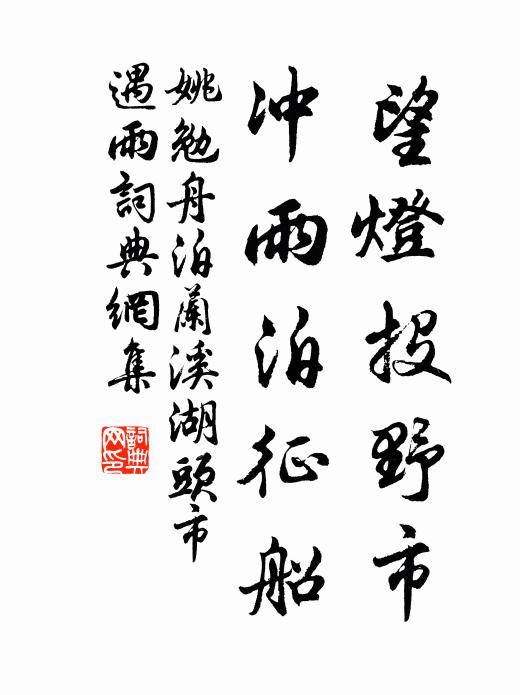 望燈投野市
冲雨泊征船
姚勉舟泊蘭溪湖頭市
遇雨詞典網集
詞典
网印